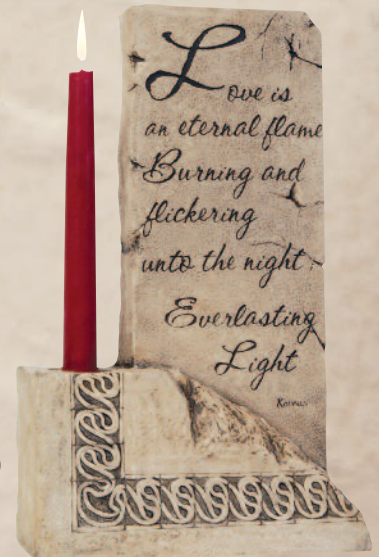 Love is
an eternal flame
Burning and
flickering
unto the night
Everlasting
Light